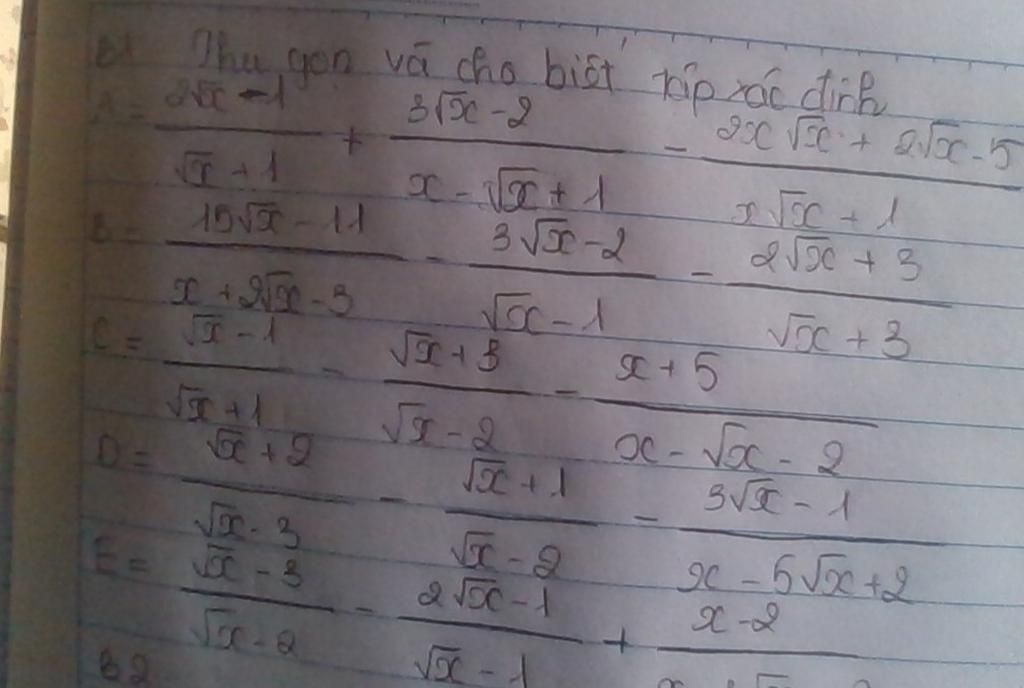 B1 Thu gọn và cho biết tập xác định
A = (2√x - 1)/(√x + 1) + (3√x - 2)/(x - √x + 1) - (2x√x + 2√x - 5)/(x√x + 1)
B = (15√x - 11)/(x + 2√x - 3) - (3√x - 2)/(√x - 1) - (2√x + 3)/(√x + 3)
C = (√x - 1)/(√x + 1) - (√x + 3)/(√x - 2) - (x + 5)/(x - √x - 2)
D = (√x + 2)/(√x - 3) - (√x + 1)/(√x - 2) - (3√x - 1)/(x - 5√x + 2)
E = (√x - 3)/(√x - 2) - (2√x - 1)/(√x - 1) + (x - 2)/
B2